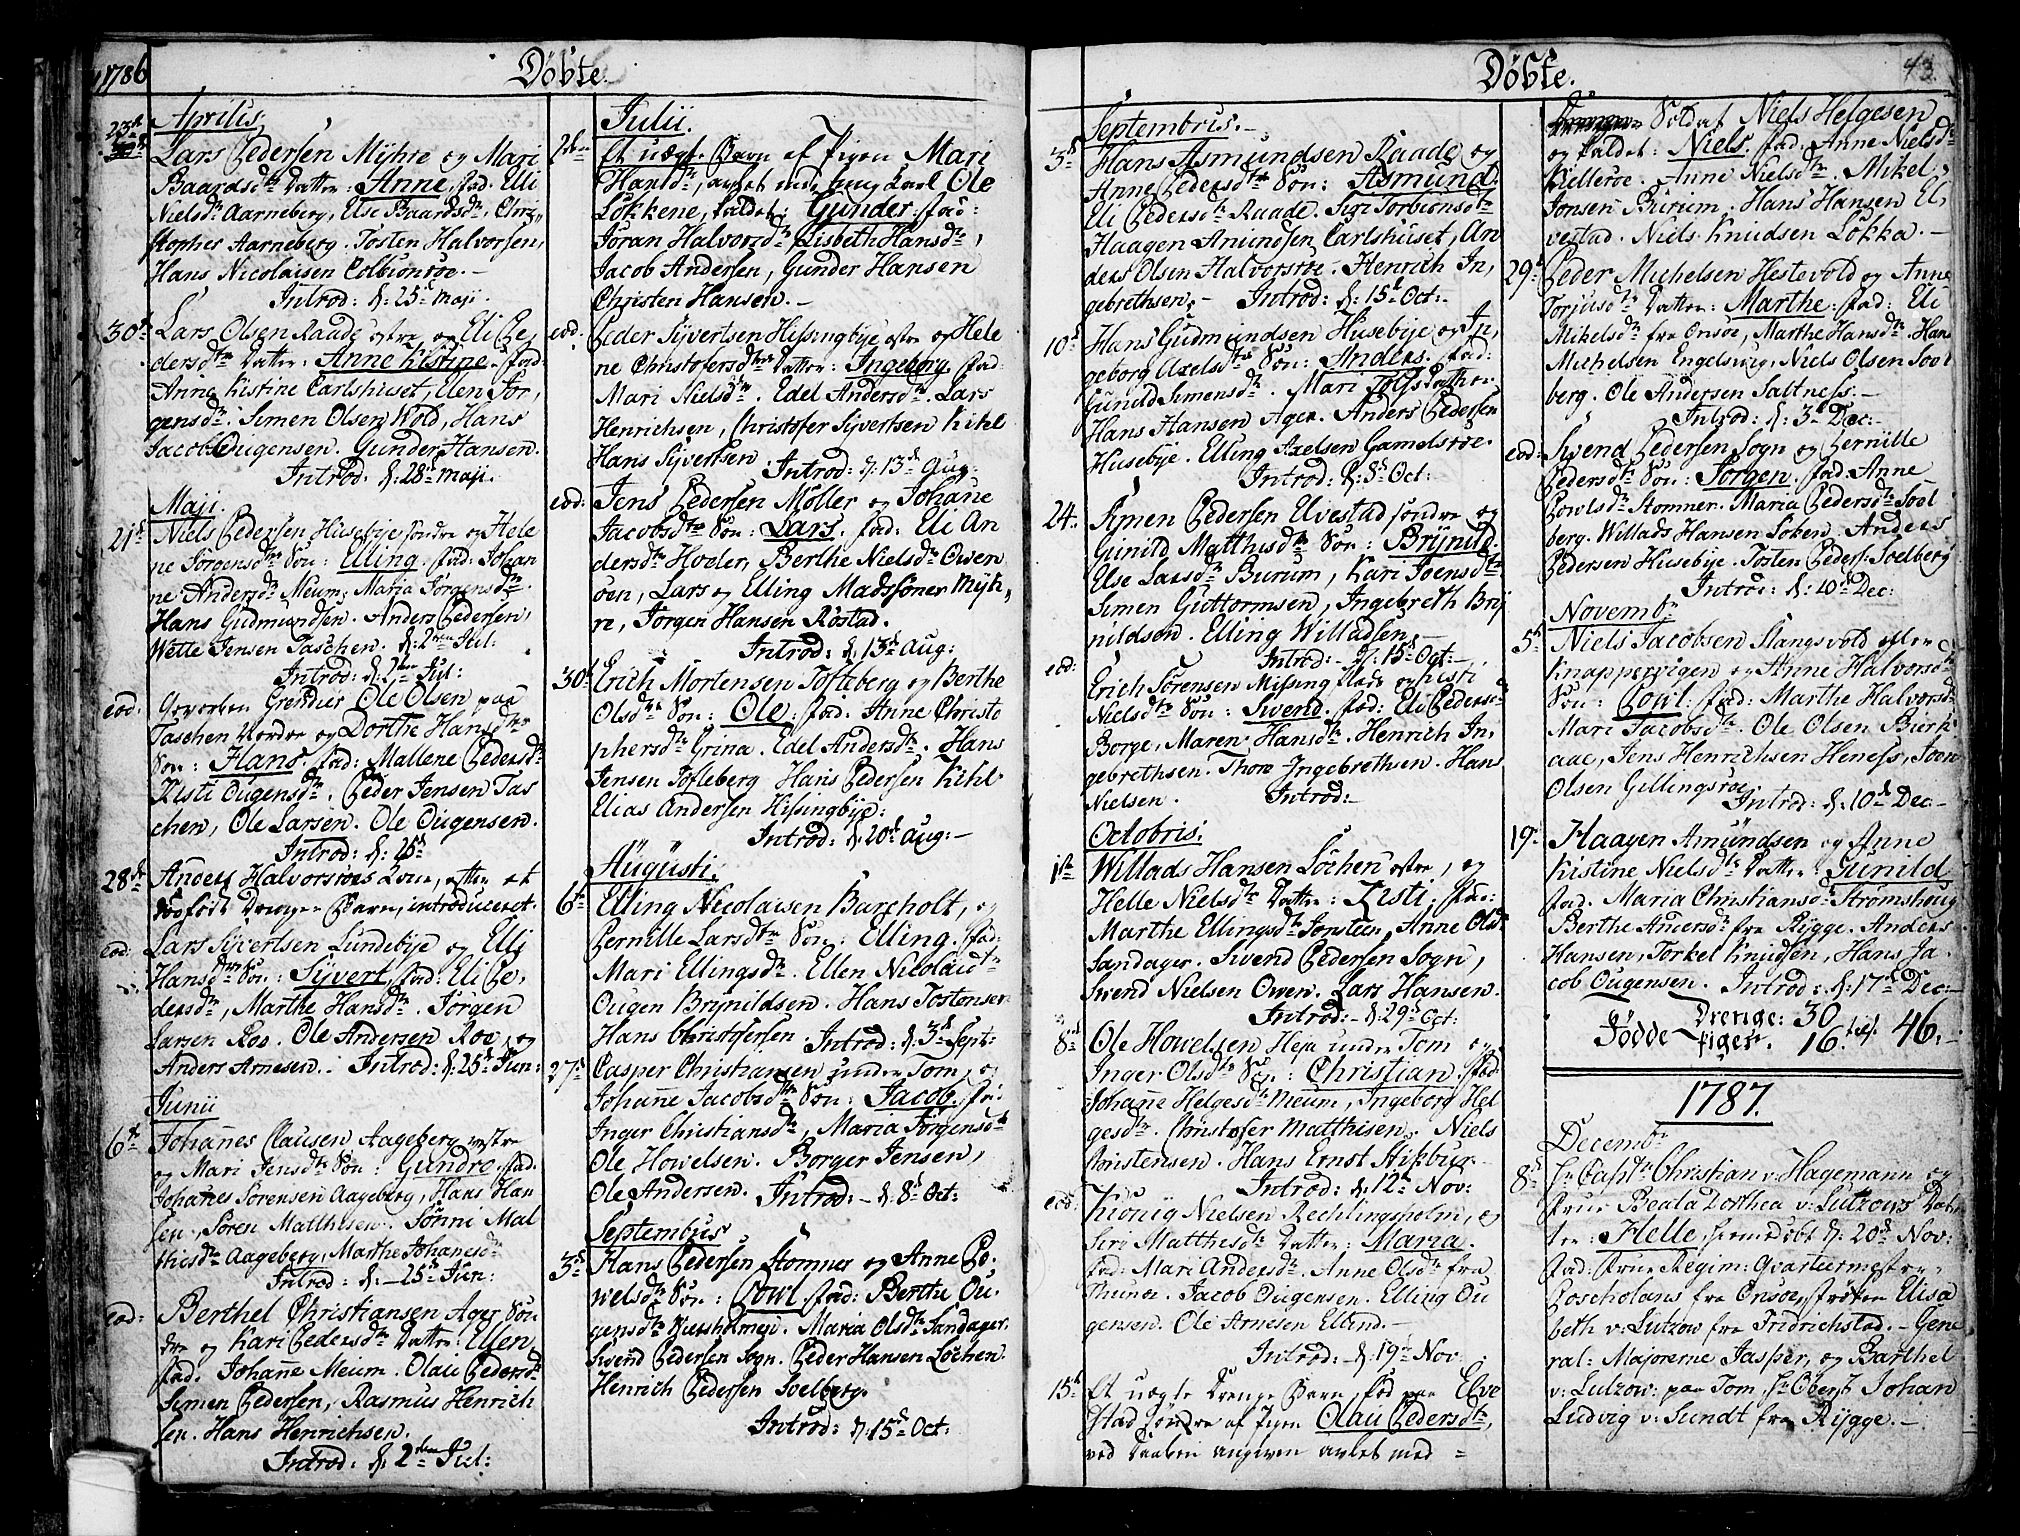 1786
Døbte.
Aprilis.
23de
Lars Pedersen Myhre og Mari
Baardsdtr Datter: Anne, fad. Elli
Nielsdtr Aarneberg, Else Baardsdtr, Chri
stopher Aarneberg. Tosten Halvorsen,
Hans Nicolaisen Colbionsrøe.
Introd: d: 25de Maji.
30te Lars Olsen Raade østre og Eli Pe
dersdtr Datter: Anne Kistine. fad:
Anne Kistine Carlshuset, Elen Jør
gensdtr. Simen Olsen Wold, Hans
Jacob Ougensen. Gunder Hansen.
Introd. d: 28de Maji.
Maji.
21de Niels Pedersen Husebye søndre og Hele
ne Jørgensdtr Søn: Elling. fad: Johan
ne Andersdtr Meum, Maria Jørgensdtr.
Hans Gudmundsen. Anders Pedersen,
Wette Jensen Taschen. d: 2den Jul:
Introd: d: 2den Jul:
eod: Gevorben Grenader Ole Olsen paa
Taschen Nordre og Dorthe Hansdtr
Søn: Hans. fad: Mallene Pedersdtr
Kisti Ougensdtr. Peder Jensen Tas
chen, Ole Larsen. Ole Ougensen.
Introd: d: 25de
28de Anders Halvorsrøes Kone, efter et
dødfødt Drenge Barn, introduceret.
eod: Lars Syvertsen Lundebye og Elli
Hansdtr Søn: Syvert, fad: Eli Pe
dersdtr, Marthe Hansdtr. Jørgen
Larsen Roe. Ole Andersen Roe, og
Anders Arnesen. Introd: d: 25de Jun:
Junii
6te Johannes Clausen Aageberg vestre
og Mari Jensdtr Søn: Gundro. fad.
Johannes Sørensen Aageberg, Hans Han
sen. Søren Matthisen. Sønni Mat
thisdtr Aageberg, Marthe Johannesdtr
Introd: d: 25de Jun:
eod: Berthel Christiansen Ager Søn
dre og Kari Pedersdtr Datter: Ellen
fad. Johanne Meum. Olau Pedersdtr
Simen Pedersen, Rasmus Henrich
sen. Hans Henrichsen.
Introd: d: 2den Jul:
Julii.
2den Et uægte Barn af Pigen Mari
Hansdtr, avlet med ung Karl Ole
Løkkene, kaldet: Gunder. fad:
Jøran Halvorsdtr Lisbeth Hansdtr,
Jacob Andersen, Gunder Hansen
Christen Hansen.
eod: Peder Syvertsen Hissingbye østre og Hele
ne Christofersdtr Datter: Ingeborg. fad:
Mari Nielsdtr. Edel Andersdtr. Lars
Henrichsen, Christofer Syvertsen Kihl
Hans Syvertsen Introd: d: 13de Aug:
eod: Jens Pedersen Møller og Johane
Jacobsdtr Søn: Lars. fad: Eli An
dersdtr Hoeler, Berthe Nielsdtr Owen
øen, Lars og Elling Madssøner Myh
re, Jørgen Hansen Røstad.
Introd: d: 13de Aug:
30te Erich Mortensen Tofteberg og Berthe
Olsdtr Søn: Ole. fad: Anne Christo
phersdtr Grina. Edel Andersdtr. Hans
Jensen Tofteberg Hans Pedersen Kihl
Elias Andersen Hissingbye:
Introd: d: 20de Aug:
Augusti.
6te Elling Nicolaisen Barcholt, og
Pernille Larsdtr Søn: Elling. fad:
Mari Ellingsdtr. Ellen Nicolaidtr
Ougen Brynildsen. Hans Tostensen
Hans Christofersen. Introd: d: 3de Sept:
27de Casper Christiansen under Tom, og
Johanne Jacobsdtr Søn: Jacob. fad:
Inger Christiansdtr, Maria Jørgensdtr
Ole Howelsen. Borger Jensen,
Ole Andersen. Introd: d: 8de Oct:
Septembris
3de Hans Pedersen Stomner og Anne Po
welsdtr Søn: Powl. fad: Berthe Ou
gensdtr Kurholmen. Maria Olsdtr Sandager.
Swend Pedersen Sogn. Peder Hansen Løchen.
Henrich Pedersen Soelberg.
Introd: d: 15de Oct:
Døbte.
43.
Septembris.
3de Hans Asmundsen Raade og
Anne Pedersdtr Søn: Asmund.
Eli Pedersdtr Raade. Siri Torbionsdtr
Haagen Amundsen Carlshuset, An
ders Olsen Halvorsrøe. Henrich In
gebrethsen. Introd: d: 15de Oct:
10de Hans Gudmundsen Husebye og In
geborg Axelsdtr Søn: Anders. fad:
Gunild Simensdtr. Mari Tolfsdatter.
Hans Hansen Ager. Anders Pedersen
Husebye. Elling Axelsen Gamelsrøe.
Introd: d: 8de Oct:
24. Symen Pedersen Elvestad søndre og
Gunild Matthisdtr Søn: Brynild.
Else Larsdtr Burum, Kari Joensdtr
Simen Guttormsen, Ingebreth Bry
nildsen. Elling Willadsen.
Introd: d: 15de Oct:
eod: Erich Sørensen Missingstade og Kisti
Nielsdtr Søn: Swend. fad: Eli Pedersdtr
Borge, Maren Hansdtr. Henrich In
gebrethsen. Thore Ingebrethsen. Hans
Nielsen. Introd:
Octobris.
1ste Willads Hansen Løchen østre, og
Helle Nielsdtr Datter: Kisti. fad:
Marthe Ellingsdtr Jonsteen, Anne Olsdtr
Sandager. Swend Pedersen Sogn,
Swend Nielsen Owen. Lars Hansen.
Introd: d: 29de Oct:
8de Ole Howelsen Heje under Tom og
Inger Olsdtr Søn: Christian. fad.
Johanne Helgesdtr Meum, Ingeborg Hel
gesdtr. Christofer Matthisen. Niels
Christensen. Hans Ernst Assbur.
Introd: d: 12te Nov:
eod: Kiønig Nielsen Rechlingsholm, og
Siri Matthisdtr Datter: Maria.
fad: Mari Andersdtr. Anne Olsdtr fra
Thunøe. Jacob Ougensen. Elling Ou
gensen. Ole Arnesen Elkind.
Introd: d: 19de Nov:
15de Et uægte Drenge Barn, fød paa Elve
stad søndre af Pigen Olau Pedersdtr,
ved Daaben angiven avlet med =
Soldat Niels Helgesen
og kaldet: Niels. fad: Anne Nielsdtr
Kiellerøe. Anne Nielsdtr. Mikel
Jonsen Burum. Hans Hansen El
vestad. Niels Knudsen Løkka.
29de Peder Michelsen Hestevold og Anne
Torjusdtr Datter: Marthe. fad: Eli
Mikelsdtr fra Onsøe, Marthe Hansdtr. Hans
Michelsen Engelsvig, Niels Olsen Soel
berg. Ole Andersen Saltness.
Introd: d: 3de Dec:
eod: Swend Pedersen Sogn og Pernille
Pedersdtr Søn: Jørgen. fad: Anne
Powlsdtr Stomner. Maria Pedersdtr Soel
berg. Willads Hansen Løken. Anders
Pedersen Husebye. Tosten Peders. Soelberg
Introd: d: 10de Dec:
Novembr.
5te Niels Jacobsen Slangsvold eller
Knappervigen og Anne Halvorsdtr
Søn: Powl. fad: Marthe Halvorsdtr
Mari Jacobsdtr. Ole Olsen Birk
aae, Jens Henrichsen Heness, Joen
Olsen Gillingsrøe.
Introd: d: 10de Dec
19. Haagen Amundsen og Anne
Kistine Nielsdtr Datter: Gunild
fad. Maria Christiansdtr Strømshaug
Berthe Amersdtr fra Rygge. Anders
Hansen, Torkel Knudsen, Hans Ja
cob Ougensen. Introd: d: 17de Dec:
Fødde Drenge: 30
Piger. 16. tils. 46.
1787.
Decembr
8de Hr Captn Christian v: Hagemann og
Frue Beata Dorthea v: Lutzows Dat
ter: Helle, hiemedøbt d: 20de Nov:
fad: Frue Regim: Qvarteermester
Poscholans fra Onsøe, Frøken Elisa
beth v: Lutzow fra Fridrichstad. Gene
ral: Majorerne Jasper, og Barthel
v: Lutzow: paa Tom, Hr Oberst Johan
Ludvig v: Sundt fra Rygge.